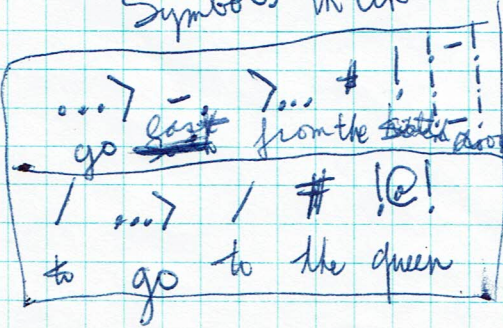 Symbols in
...> -. >... # ! !-!
go from the door
/ ...> / # !@!
to go to the queen